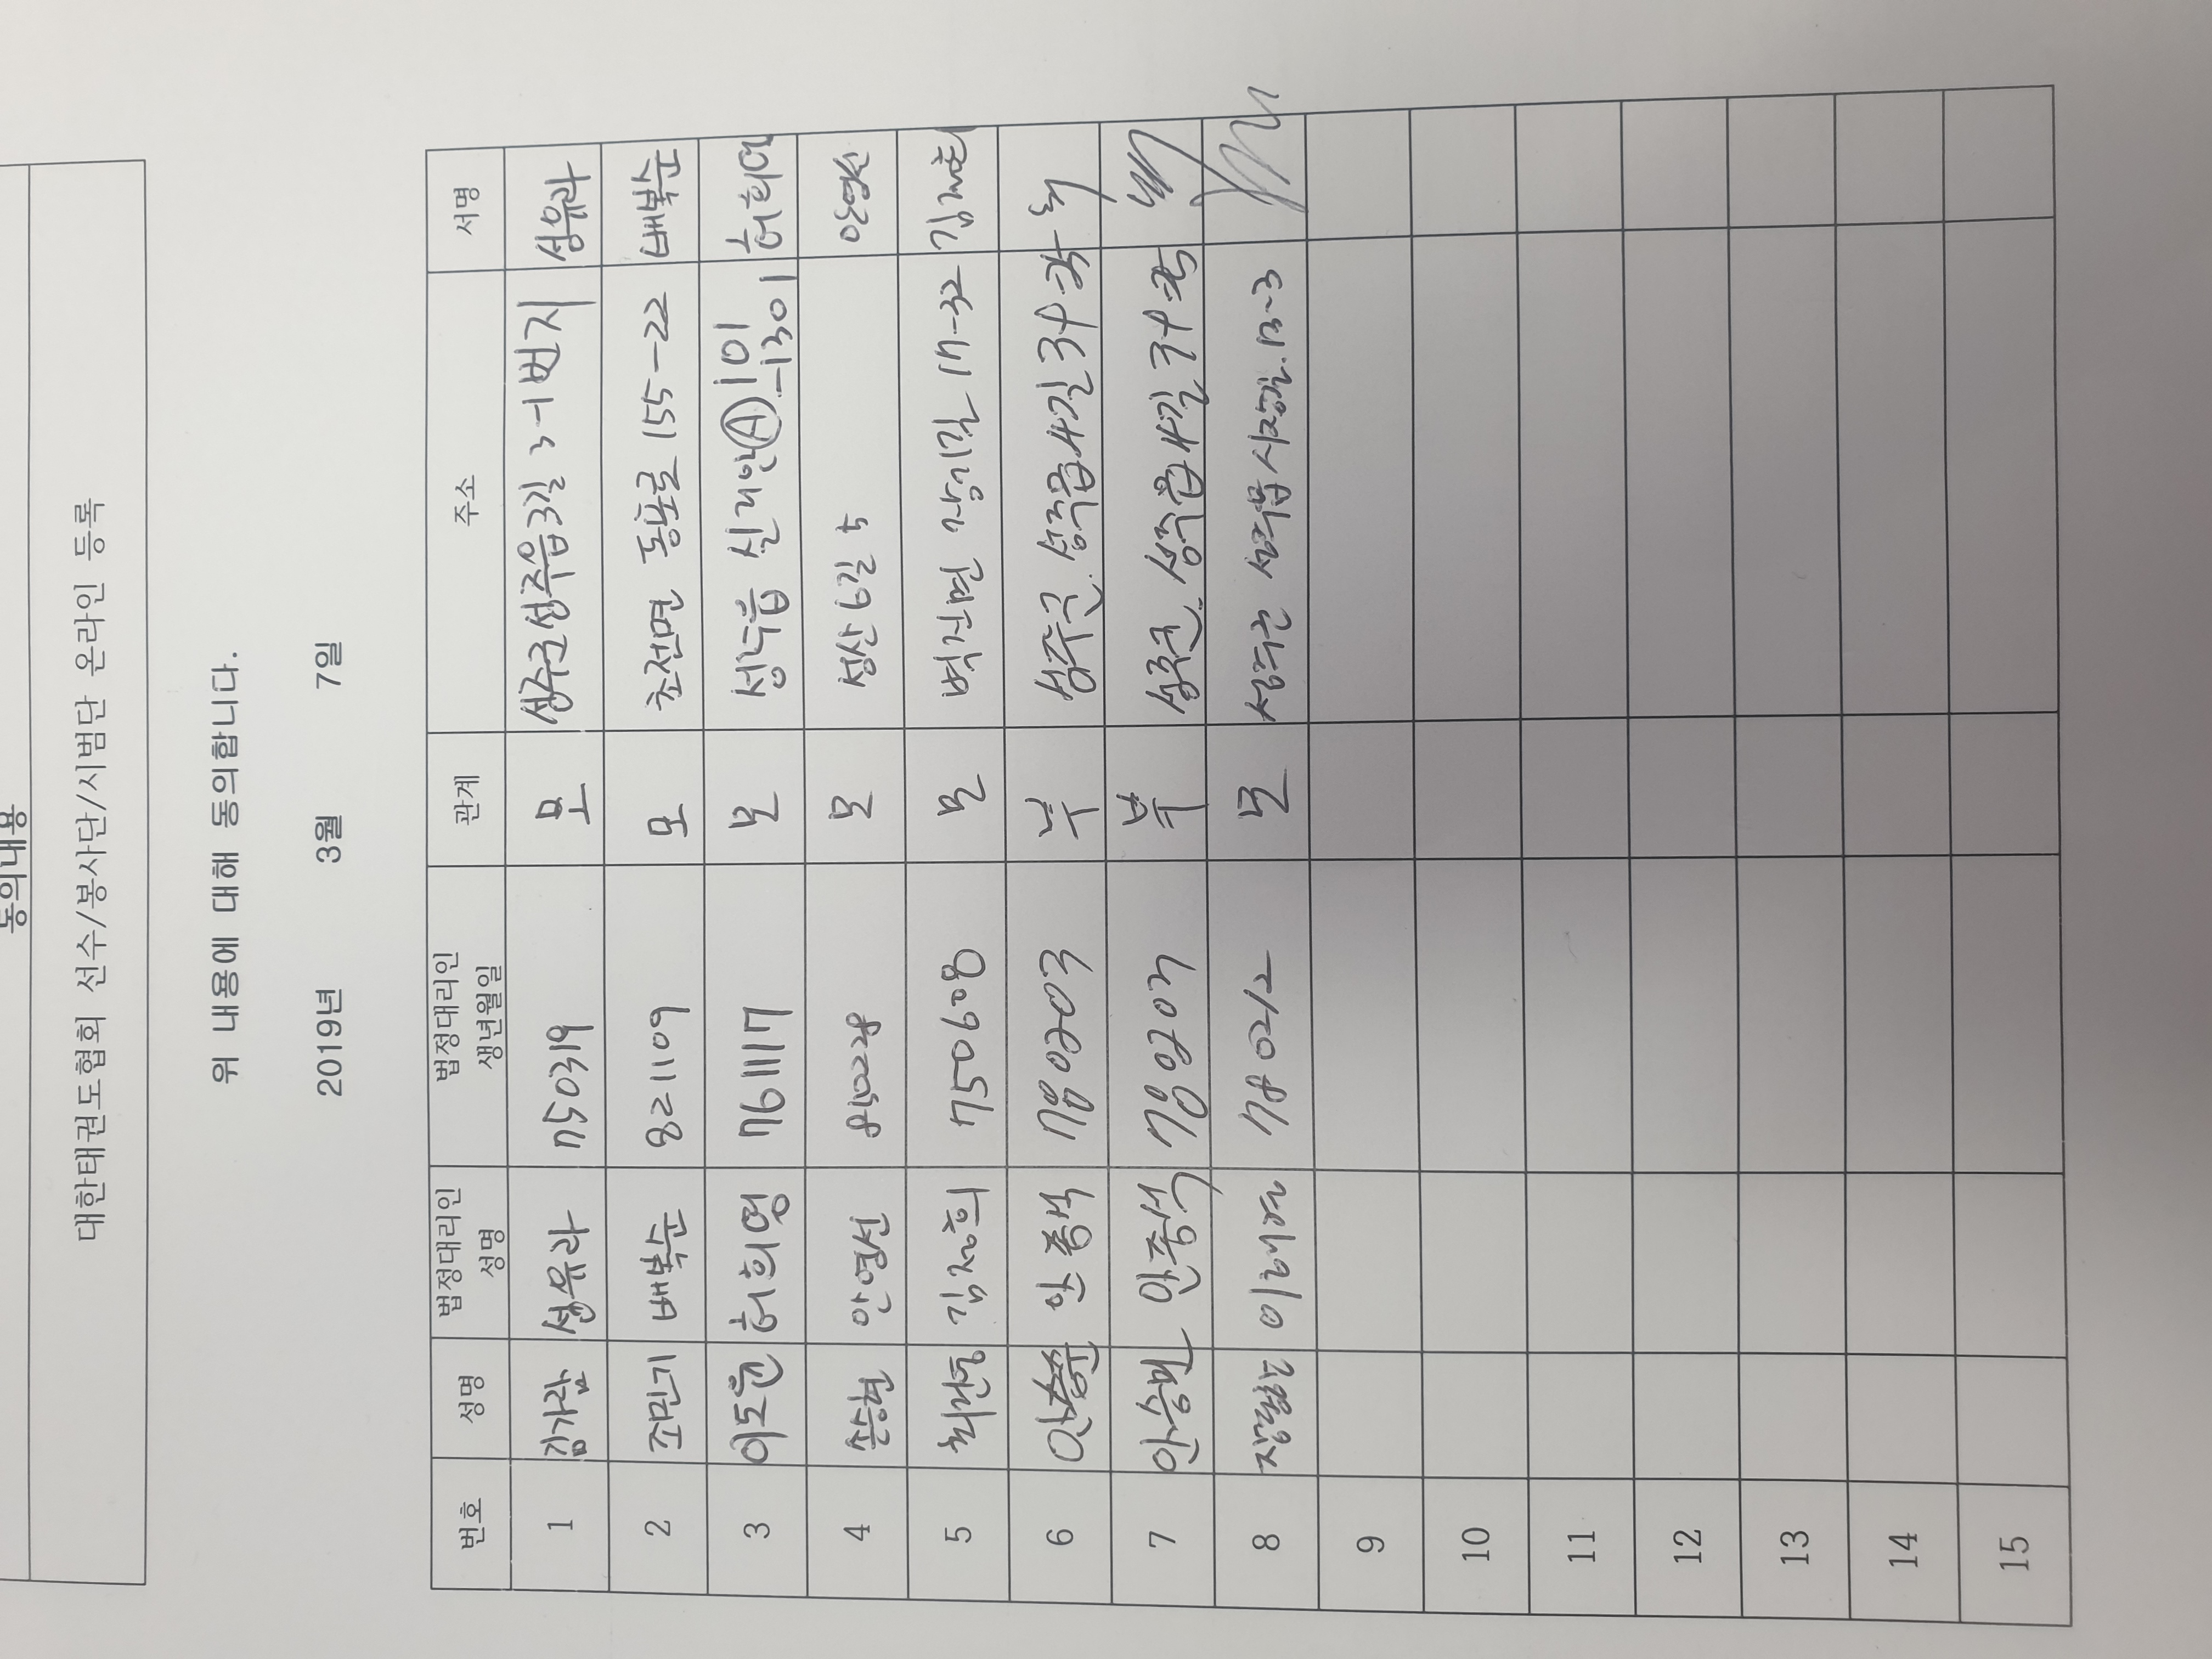 동의내용
대한태권도협회 선수/봉사단/시범단 온라인 등록
위 내용에 대해 동의합니다.
2019년 3월 7일
번호 성명 법정대리인 성명 법정대리인 생년월일 관계 주소 서명
1 김가람 성유라 750319 모 성주군성주읍3길 3-1번지 성유라
2 조민기 배복순 821109 모 초전면 동포로 155-22 배복순
3 이도윤 허희영 761117 모 성주읍 실리안Ⓐ101-1301 허희영
4 손승현 안영선 850228 모 성산6길 5 안영선
5 김정희 750608 모 벽진면 17-32
6 안종석 780203 부 성주군 성주읍
7 안승빈 안종석 780203 부 성주군 성주읍
8 780212 모 성주군 성주읍
9
10
11
12
13
14
15